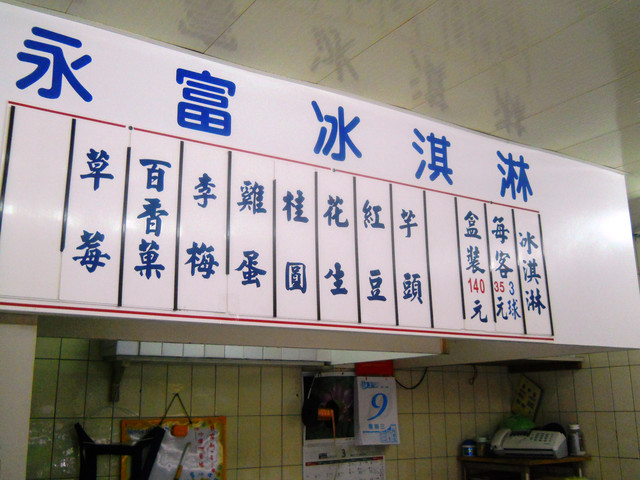 永富冰淇淋
冰淇淋
每客3球
35元
盒裝
140元
芋頭
紅豆
花生
桂圓
雞蛋
李梅
百香菓
草莓
9
3